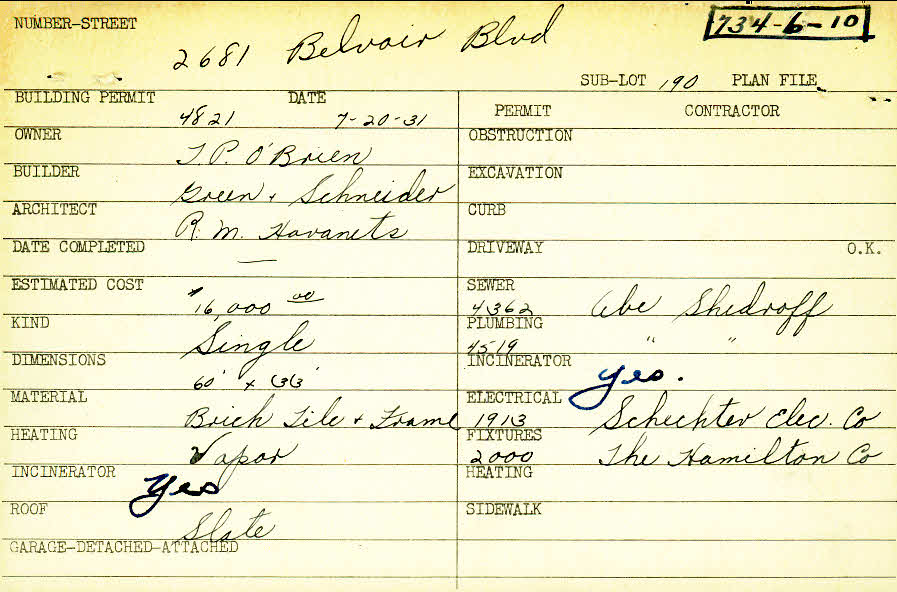 NUMBER-STREET
734-6-10
2681 Belvoir Blvd
SUB-LOT 190 PLAN FILE
BUILDING PERMIT DATE
4821 7-20-31
OWNER
T. P. O'Brien
BUILDER
Green + Schneider
ARCHITECT
R. M. Havanets
DATE COMPLETED
—
ESTIMATED COST
$16,000 00
KIND
Single
DIMENSIONS
60' x 33'
MATERIAL
Brick Tile + Frame
HEATING
Vapor
INCINERATOR
Yes
ROOF
Slate
GARAGE-DETACHED-ATTACHED
PERMIT CONTRACTOR
OBSTRUCTION
EXCAVATION
CURB
DRIVEWAY O.K.
SEWER
4362 Abe Shedroff
PLUMBING
4519 " "
INCINERATOR
Yes.
ELECTRICAL
1913 Schechter Elec. Co
FIXTURES
2000 The Hamilton Co
HEATING
SIDEWALK